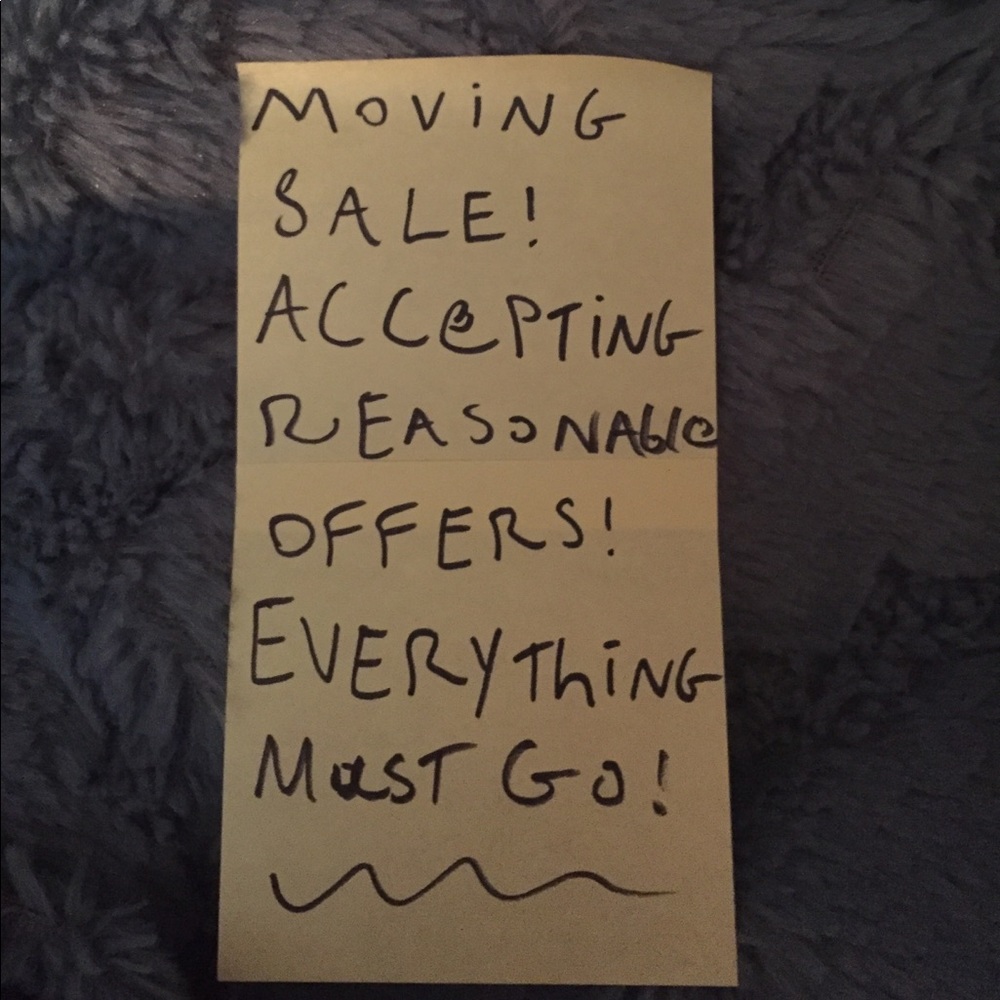 MOVING
SALE!
ACCePTiNG
REASONAble
OFFERS!
EVERYThiNG
MuST GO!